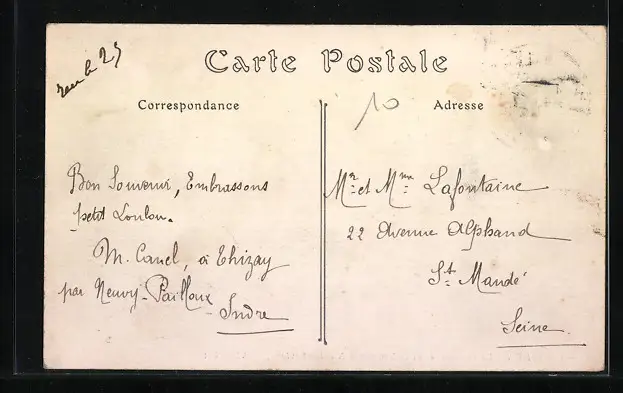 Carte Postale
Correspondance
Adresse
10
Bon Souvenir, Embrassons
petit Loulou.
M. Canel, à Thizay
par Neuvy-Pailloux
Indre
Mr et Mme Lafontaine
22 Avenue Alphand
St Mandé
Seine.